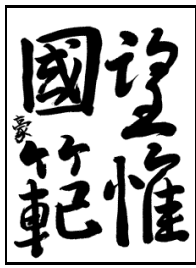 望惟
國範
豪